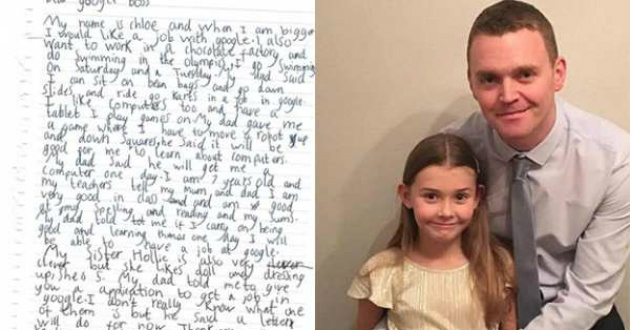 Dear google boss
My name is chloe and when I am bigger
I would like a job with google. I also
want to work in a chocolate factory and
do swimming in the olympics. I go swimming
on Saturday and a Tuesday. My dad said
I can sit on bean bags and go down
slides and ride go karts in a job in google.
I like computers too and have a
tablet I play games on. My dad gave me
a game where I have to move a robot
and down squares, he said it will be
good for me to learn about computers.
My dad said he will get me a
computer one day. I am 7 years old and
my teachers tell my mum and dad I am
very good in class and am good
at my spelling and reading and my sums.
my dad told me if I carry on being
good and learning then one day I will
be able to have a job at google.
My sister Hollie is also very clever
but she likes doll and dressing
up, she is 5. My dad told me to give
you a application to get a job in
google. I don't really know what one
of them is but he said a letter
will do for now.